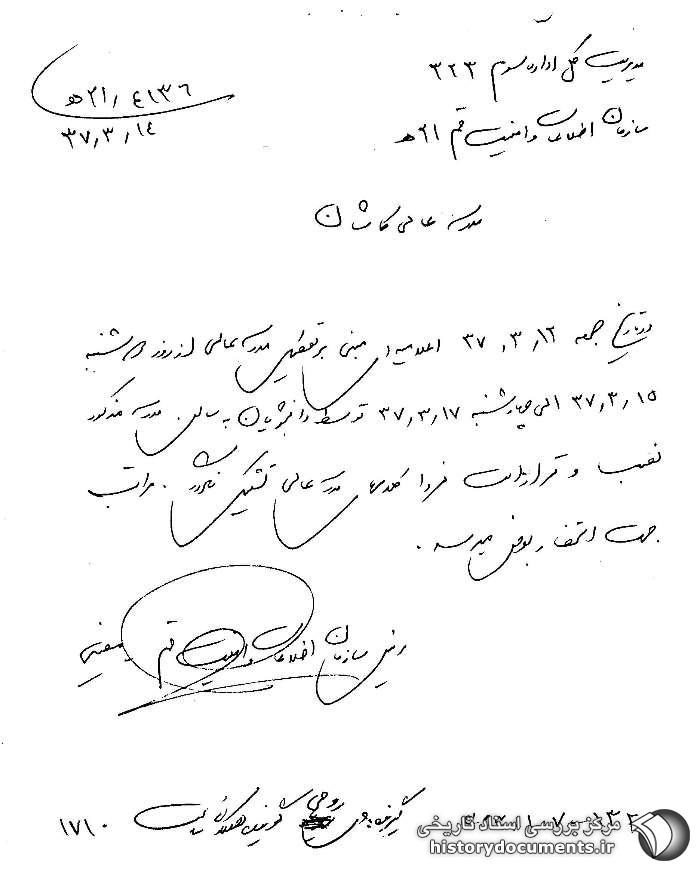 مدیریت کل اداره سوم ۳۲۳
۲۱/۴۱۳۶ هـ
۳۷٫۳٫۱۴
سازمان اطلاعات و امنیت قم ۲۱ هـ
مدرسه عالی کاشان
در تاریخ جمعه ۳۷٫۳٫۱۲ اعلامیه ای مبنی بر تعطیل مدرسه عالی از روز دوشنبه
۳۷٫۳٫۱۵ الی چهارشنبه ۳۷٫۳٫۱۷ توسط دانشجویان به سالن مدرسه مذکور
نصب و قرار است فردا کلاسهای مدرسه عالی تشکیل نگردد. مراتب
جهت استحضار بعرض میرسد.
رئیس سازمان اطلاعات و امنیت قم
گیرنده روحی گوینده
۱۷۱۰
مرکز بررسی اسناد تاریخی
historydocuments.ir